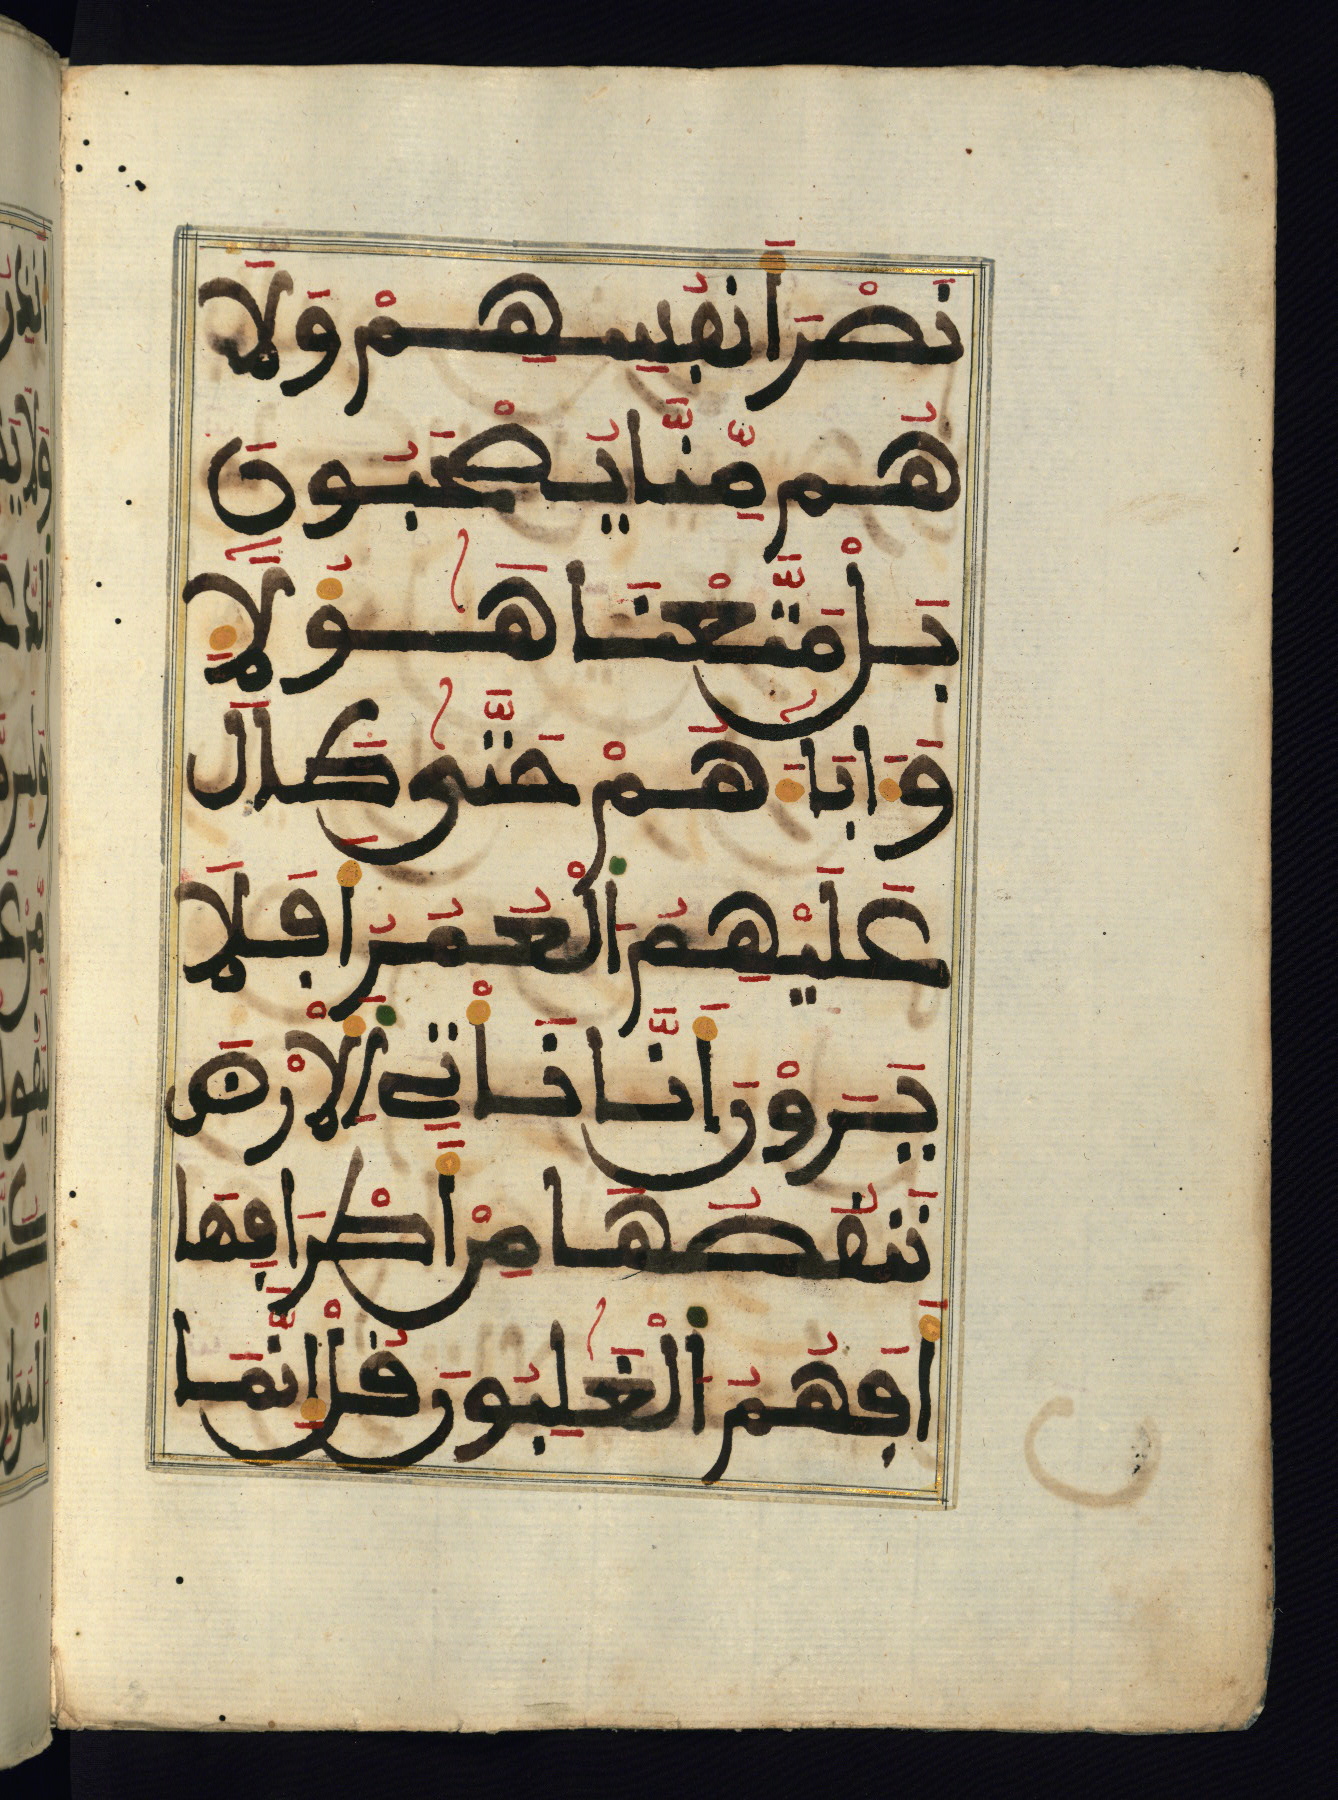 نَصْرَ أَنفُسِهِمْ وَلَا
هُم مِّنَّا يُصْحَبُونَ
بَلْ مَتَّعْنَا هَٰؤُلَآءِ
وَءَابَآءَهُمْ حَتَّىٰ طَالَ
عَلَيْهِمُ الْعُمُرُ أَفَلَا
يَرَوْنَ أَنَّا نَأْتِي الْأَرْضَ
نَنقُصُهَا مِنْ أَطْرَافِهَا
أَفَهُمُ الْغَٰلِبُونَ قُلْ إِنَّمَا